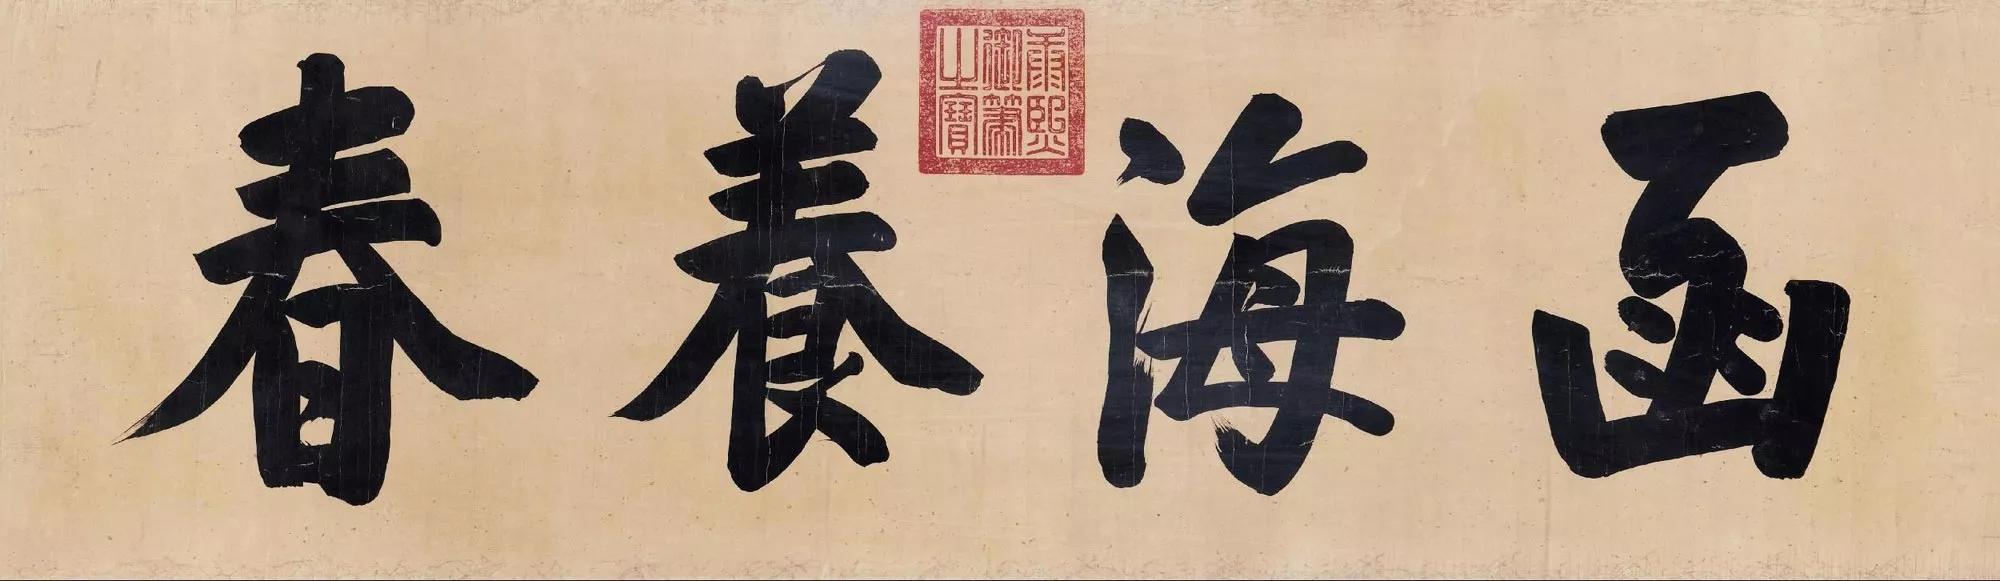 函海養春
康熙御筆之寶